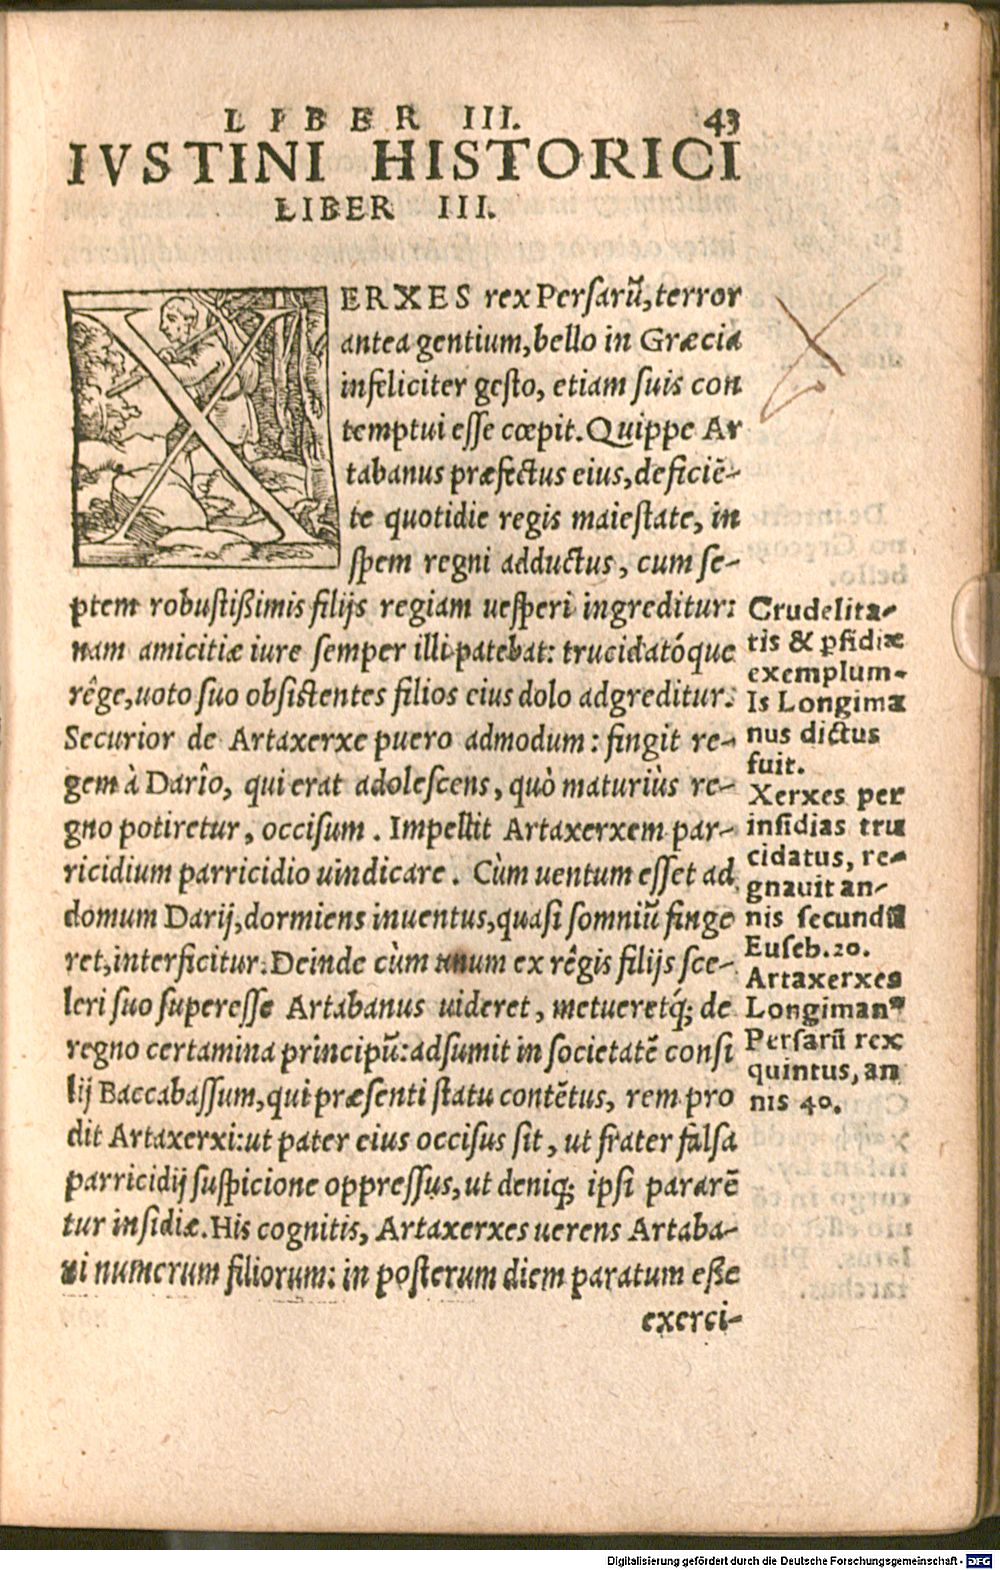 LIBER III. 43
IVSTINI HISTORICI
LIBER III.
XERXES rex Persarũ, terror
antea gentium, bello in Græcia
infeliciter gesto, etiam suis con
temptui esse cœpit. Quippe Ar
tabanus præfectus eius, deficiẽ-
te quotidie regis maiestate, in
spem regni adductus, cum se-
ptem robustißimis filijs regiam uesperi ingreditur:
nam amicitiæ iure semper illi patebat: trucidatóque
rêge, uoto suo obsistentes filios eius dolo adgreditur.
Securior de Artaxerxe puero admodum: fingit re-
gem à Darîo, qui erat adolescens, quò maturiùs re-
gno potiretur, occisum. Impellit Artaxerxem par-
ricidium parricidio uindicare. Cùm uentum esset ad
domum Darij, dormiens inuentus, quasi somniũ finge
ret, interficitur. Deinde cùm unum ex rêgis filijs sce-
leri suo superesse Artabanus uideret, metueretq́; de
regno certamina principũ: adsumit in societatẽ consi
lij Baccabassum, qui præsenti statu contẽtus, rem pro
dit Artaxerxi: ut pater eius occisus sit, ut frater falsa
parricidij suspicione oppressus, ut deniq; ipsi pararẽ
tur insidiæ. His cognitis, Artaxerxes uerens Artaba-
ni numerum filiorum: in posterum diem paratum eße
exerci-
Crudelita-
tis & ꝑfidiæ
exemplum.
Is Longima
nus dictus
fuit.
Xerxes per
insidias tru
cidatus, re-
gnauit an-
nis secundũ
Euseb. 20.
Artaxerxes
Longimanꝰ
Persarũ rex
quintus, an
nis 40.
Digitalisierung gefördert durch die Deutsche Forschungsgemeinschaft - DFG